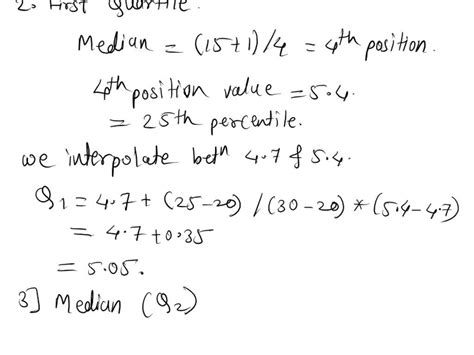 2. First Quartile.
Median = (15+1)/4 = 4th position.
4th position value = 5.4.
= 25th percentile.
we interpolate betn 4.7 & 5.4.
Q1 = 4.7 + (25-20) / (30-20) * (5.4-4.7)
= 4.7 + 0.35
= 5.05.
3] Median (Q2)